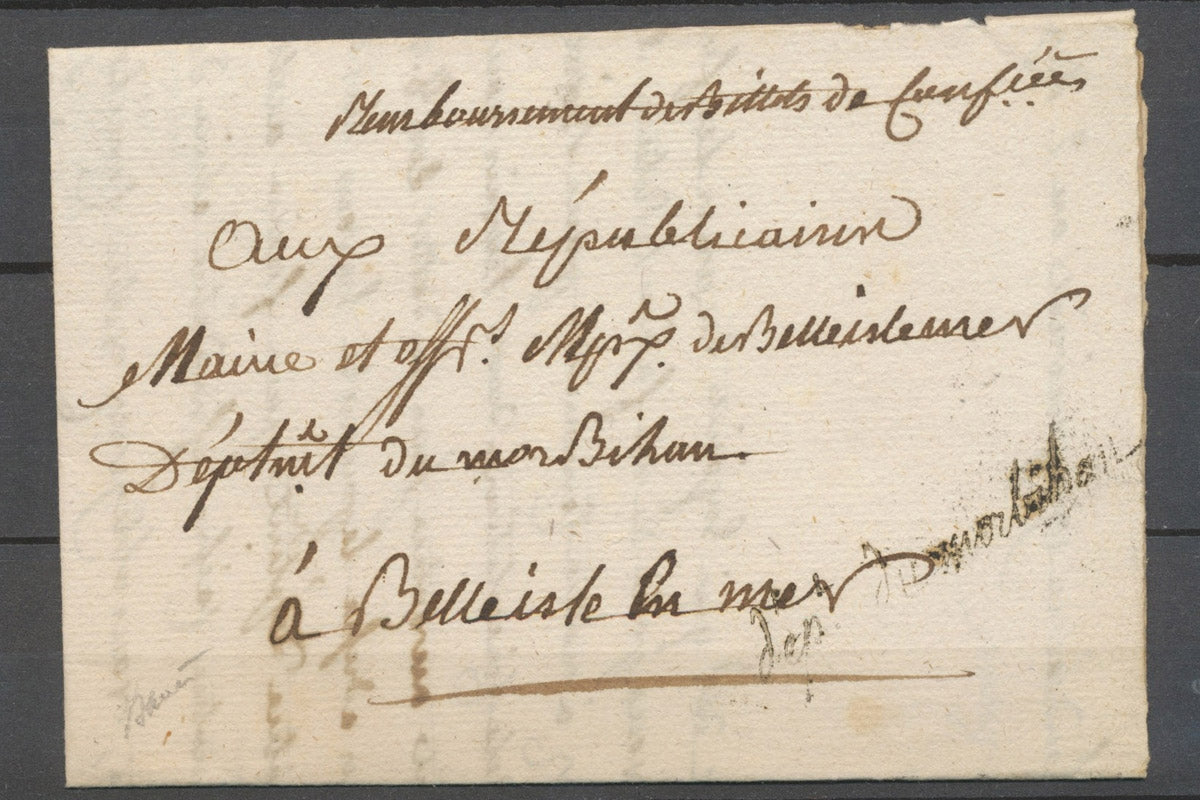 Remboursement des Billets de Confiées
Aux Républicains
Maire et offrs. Mpx. de Belleislemer
Déptmt. du morBihan.
à Belleisle En mer
dep. du morbihan